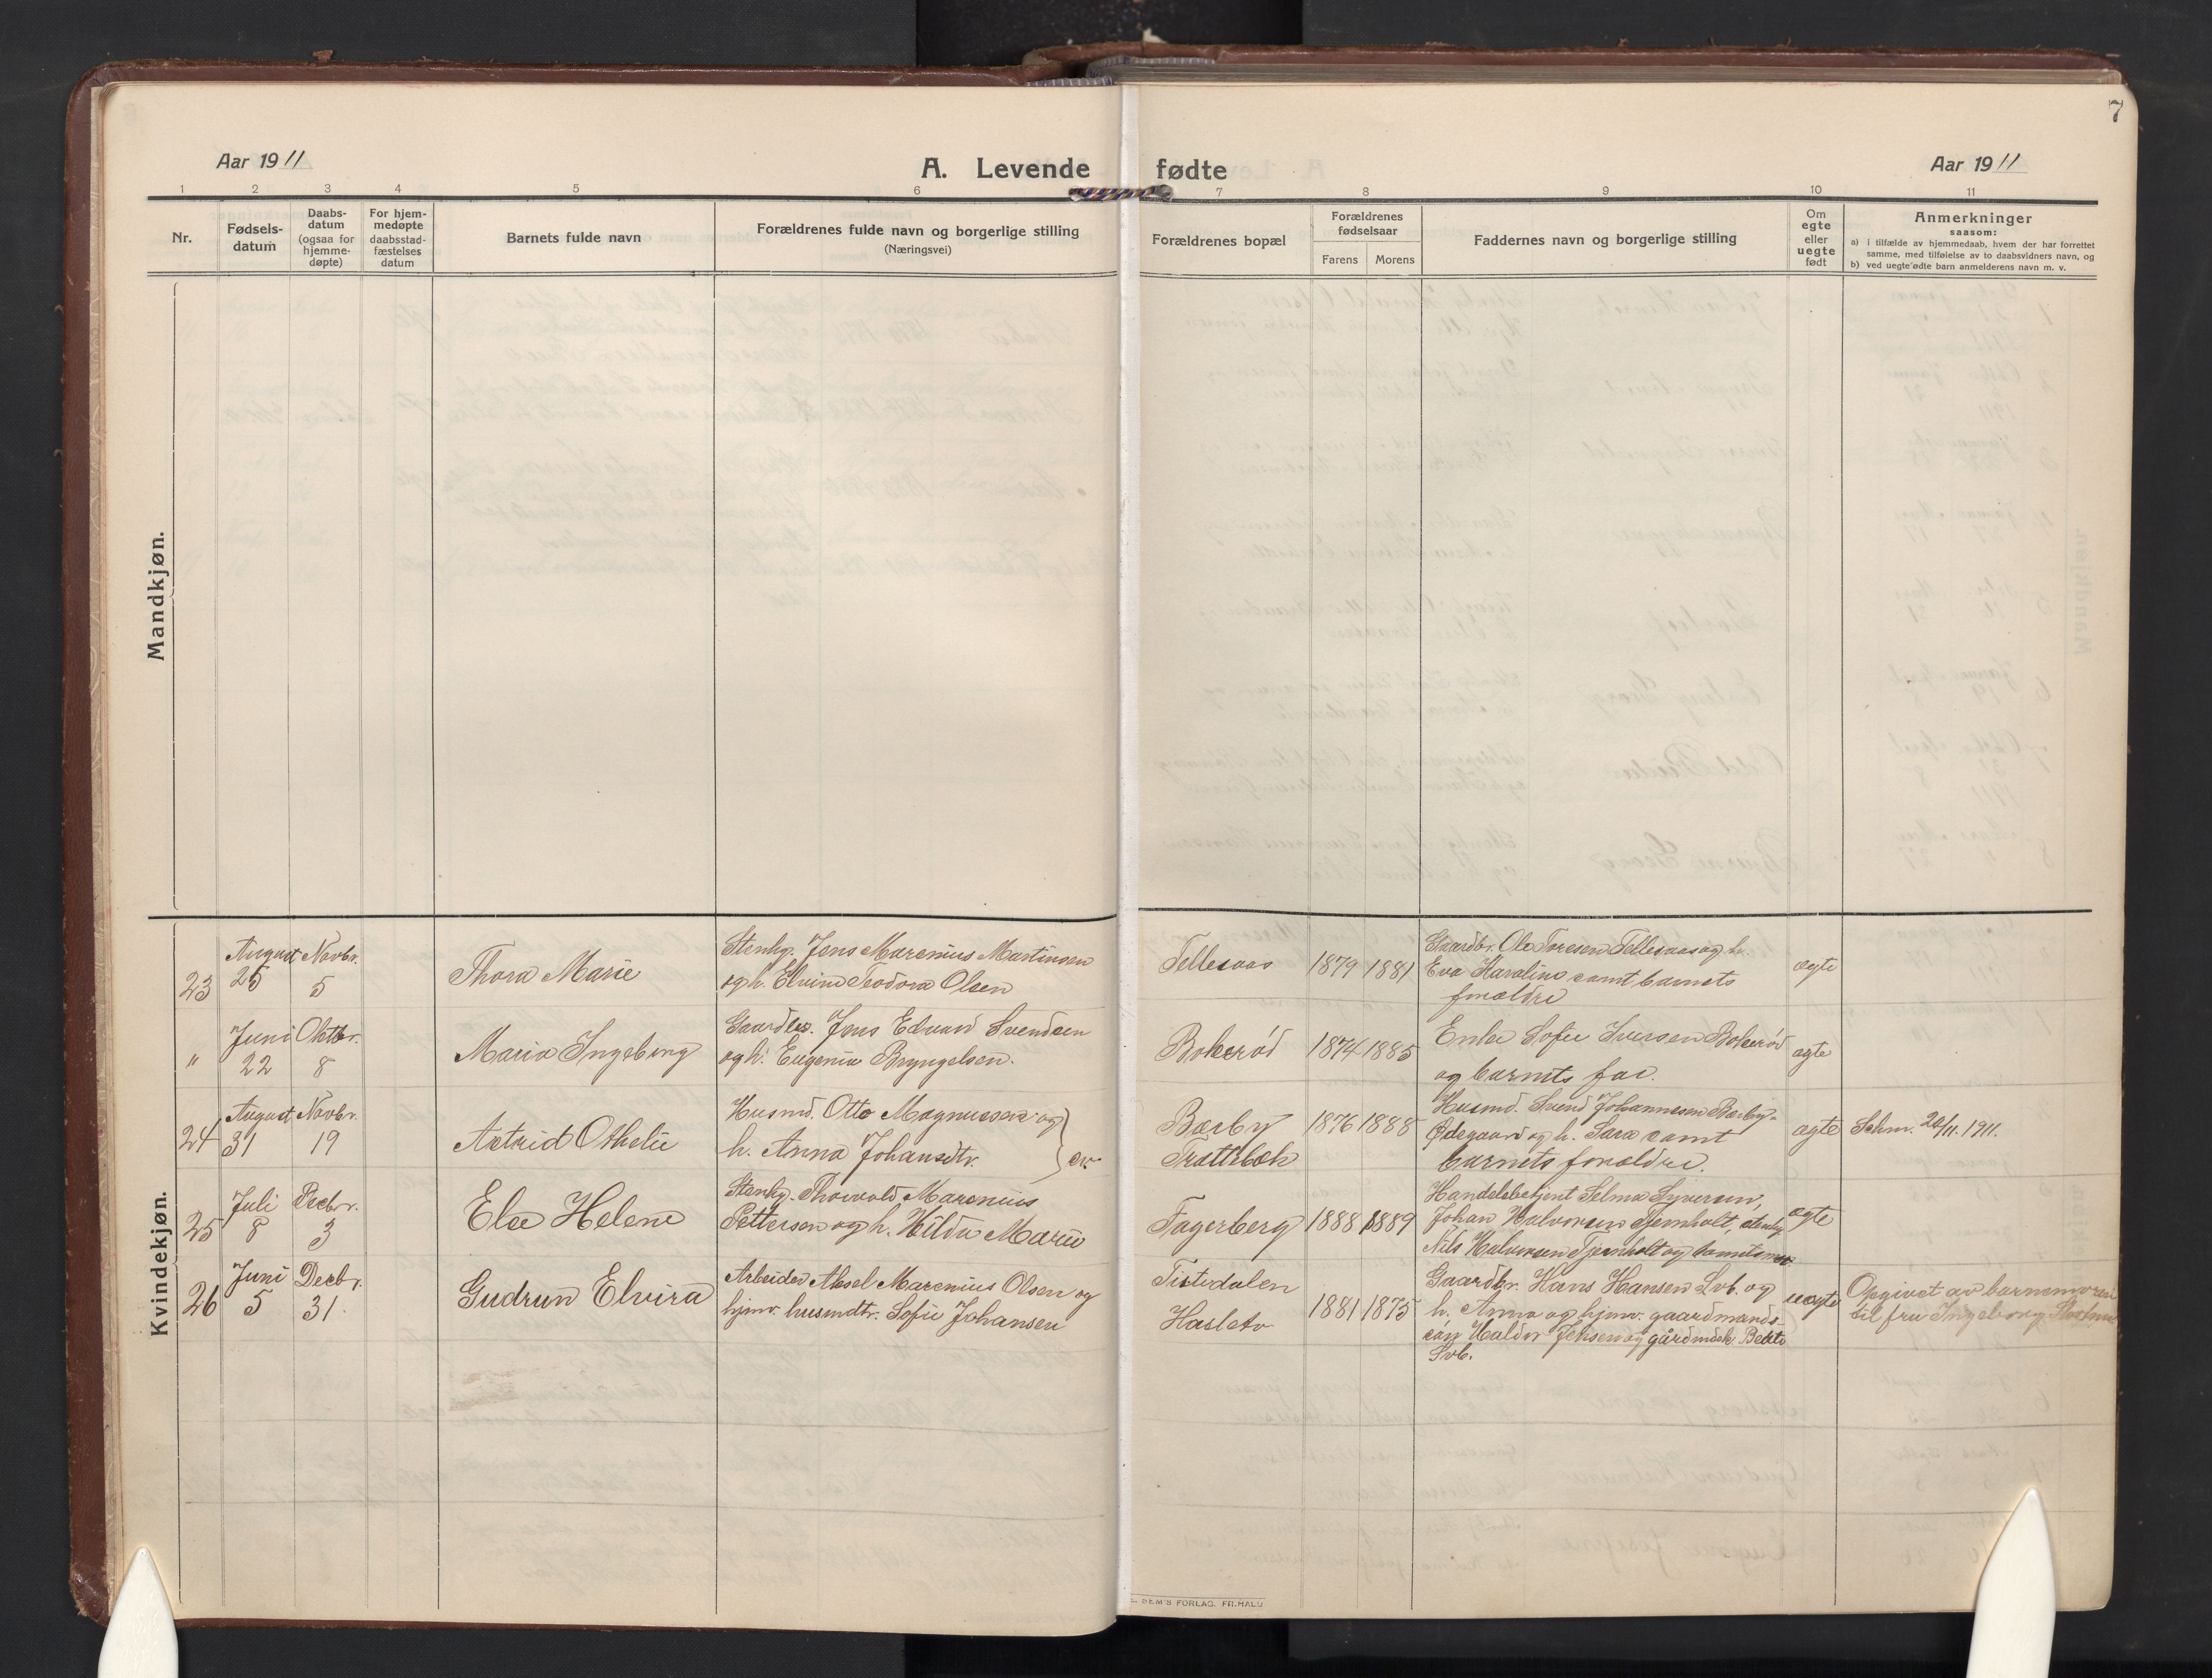 7
Aar 1911
A. Levende fødte
Aar 1911
1 2 3 4 5 6 7 8 9 10 11
Nr.
Fødsels-
datum
Daabs-
datum
(ogsaa for
hjemme-
døpte)
For hjem-
medøpte
daabsstad-
fæstelses
datum
Barnets fulde navn
Forældrenes fulde navn og borgerlige stilling
(Næringsvei)
Forældrenes bopæl
Forældrenes
fødselsaar
Farens Morens
Faddernes navn og borgerlige stilling
Om
egte
eller
uegte
født
Anmerkninger
saasom:
a) i tilfælde av hjemmedaab, hvem der har forrettet
samme, med tilføielse av to daabsvidners navn, og
b) ved uegte fødte barn anmelderens navn m. v.
Mandkjøn.
Kvindekjøn.
23
August
25
Novbr.
5
Thora Marie
Stenhg. Jens Marenius Martinsen
og h. Elvine Teodora Olsen
Tellesaas
1879 1881
Gaardbr. Ole Toresen Tellesaas og h.
Eva Karoline samt barnets
forældre
ægte
"
Juni
22
Oktbr.
8
Maria Ingeborg
Gaardbr. Jens Edvard Svendsen
og h. Eugenia Bryngelsen.
Bokerød
1874 1885
Enke Sofie Iversen Bokerød
og barnets far.
ægte
24
August
31
Novbr.
19
Astrid Othelie
Husmd. Otto Magnussen og
h. Anna Johansdtr.
Bærby
Trattebæk
1876 1888
Husmd. Svend Johannesen Bærby-
Ødegaard og h. Sara samt
barnets forældre.
ægte
20/11. 1911.
25
Juli
8
Decbr.
3
Else Helene
Stenhg. Thorvald Marenius
Pettersen og h. Hilda Marie
Fagerberg
1888 1889
Handelsbetjent Selma Syversen,
Johan Halvorsen Tjernholt, stenhg.
Nils Halvorsen Tjernholt og barnets mor
ægte
26
Juni
5
Decbr.
31.
Gudrun Elvira
Arbeider Aksel Marenius Olsen og
hjmv. husmdtr. Sofie Johansen
Tistedalen
Hasleto
1881 1875
Gaardbr. Hans Hansen Svb. og
h. Anna og hjmv. gaardmands-
søn Haldor Jensen og gårdmdsk. Berte
Svb.
uegte
Opgivet av barnemoren
til fru Ingeborg
FORLAG. FR.HALD